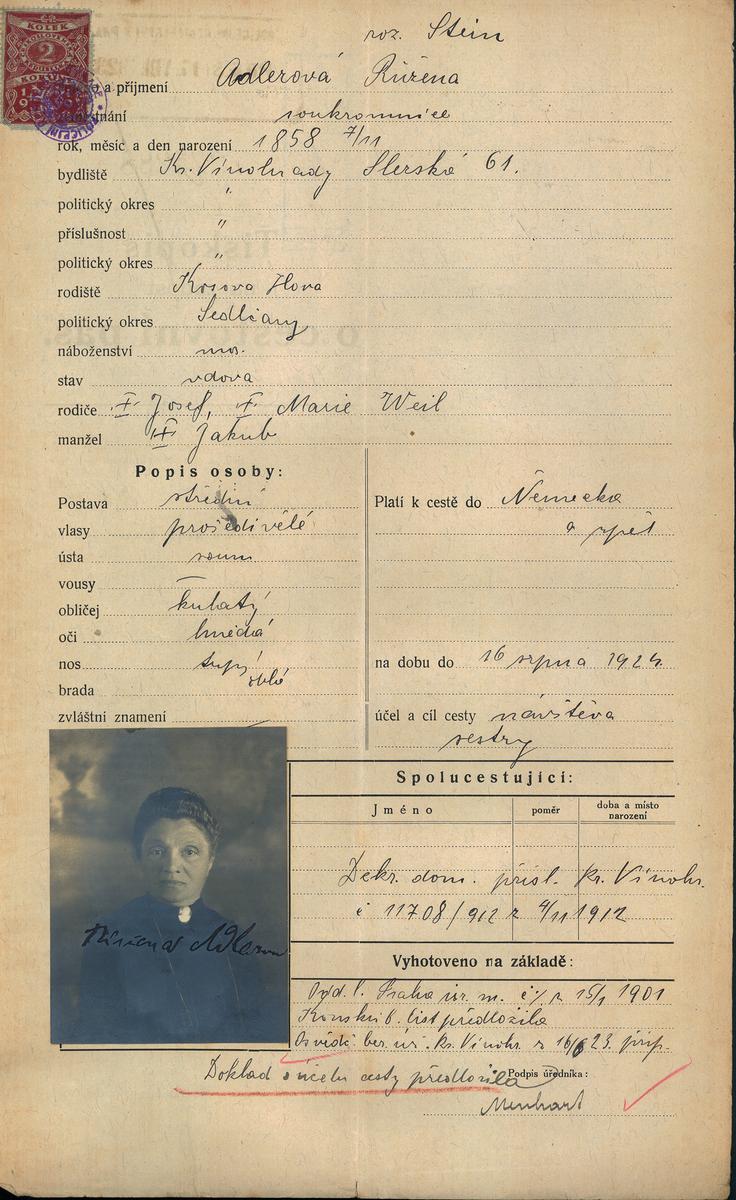 roz. Stein
KOLEK
2
KORUNY
a příjmení Adlerová Růžena
soukromnice
rok, měsíc a den narození 1858 7/11
bydliště Kr. Vinohrady Slezská 61.
politický okres "
příslušnost "
politický okres "
rodiště Kosova Hora
politický okres Sedlčany
náboženství mos.
stav vdova
rodiče Josef, Marie Weil
manžel Jakub
Popis osoby:
Postava střední
vlasy prošedivělé
ústa soum.
vousy —
obličej kulatý
oči hnědá
nos tupý
oblé
brada
zvláštní znamení
Platí k cestě do Německa
a zpět
na dobu do 16 srpna 1924.
účel a cíl cesty návštěva
sestry
Spolucestující:
Jméno poměr doba a místo narození
Dekr. dom. přísl. Kr. Vinohr.
č 11708/912 z 4/11 1912
Růžena Adlerova
Vyhotoveno na základě:
Praha isr. m. č/. z 15/1 1901
list předložila
Osvědč. ber. úř. Kr. Vinohr. z 16/6 23. přip.
Doklad o účelu cesty předložila
Podpis úředníka:
Menhart